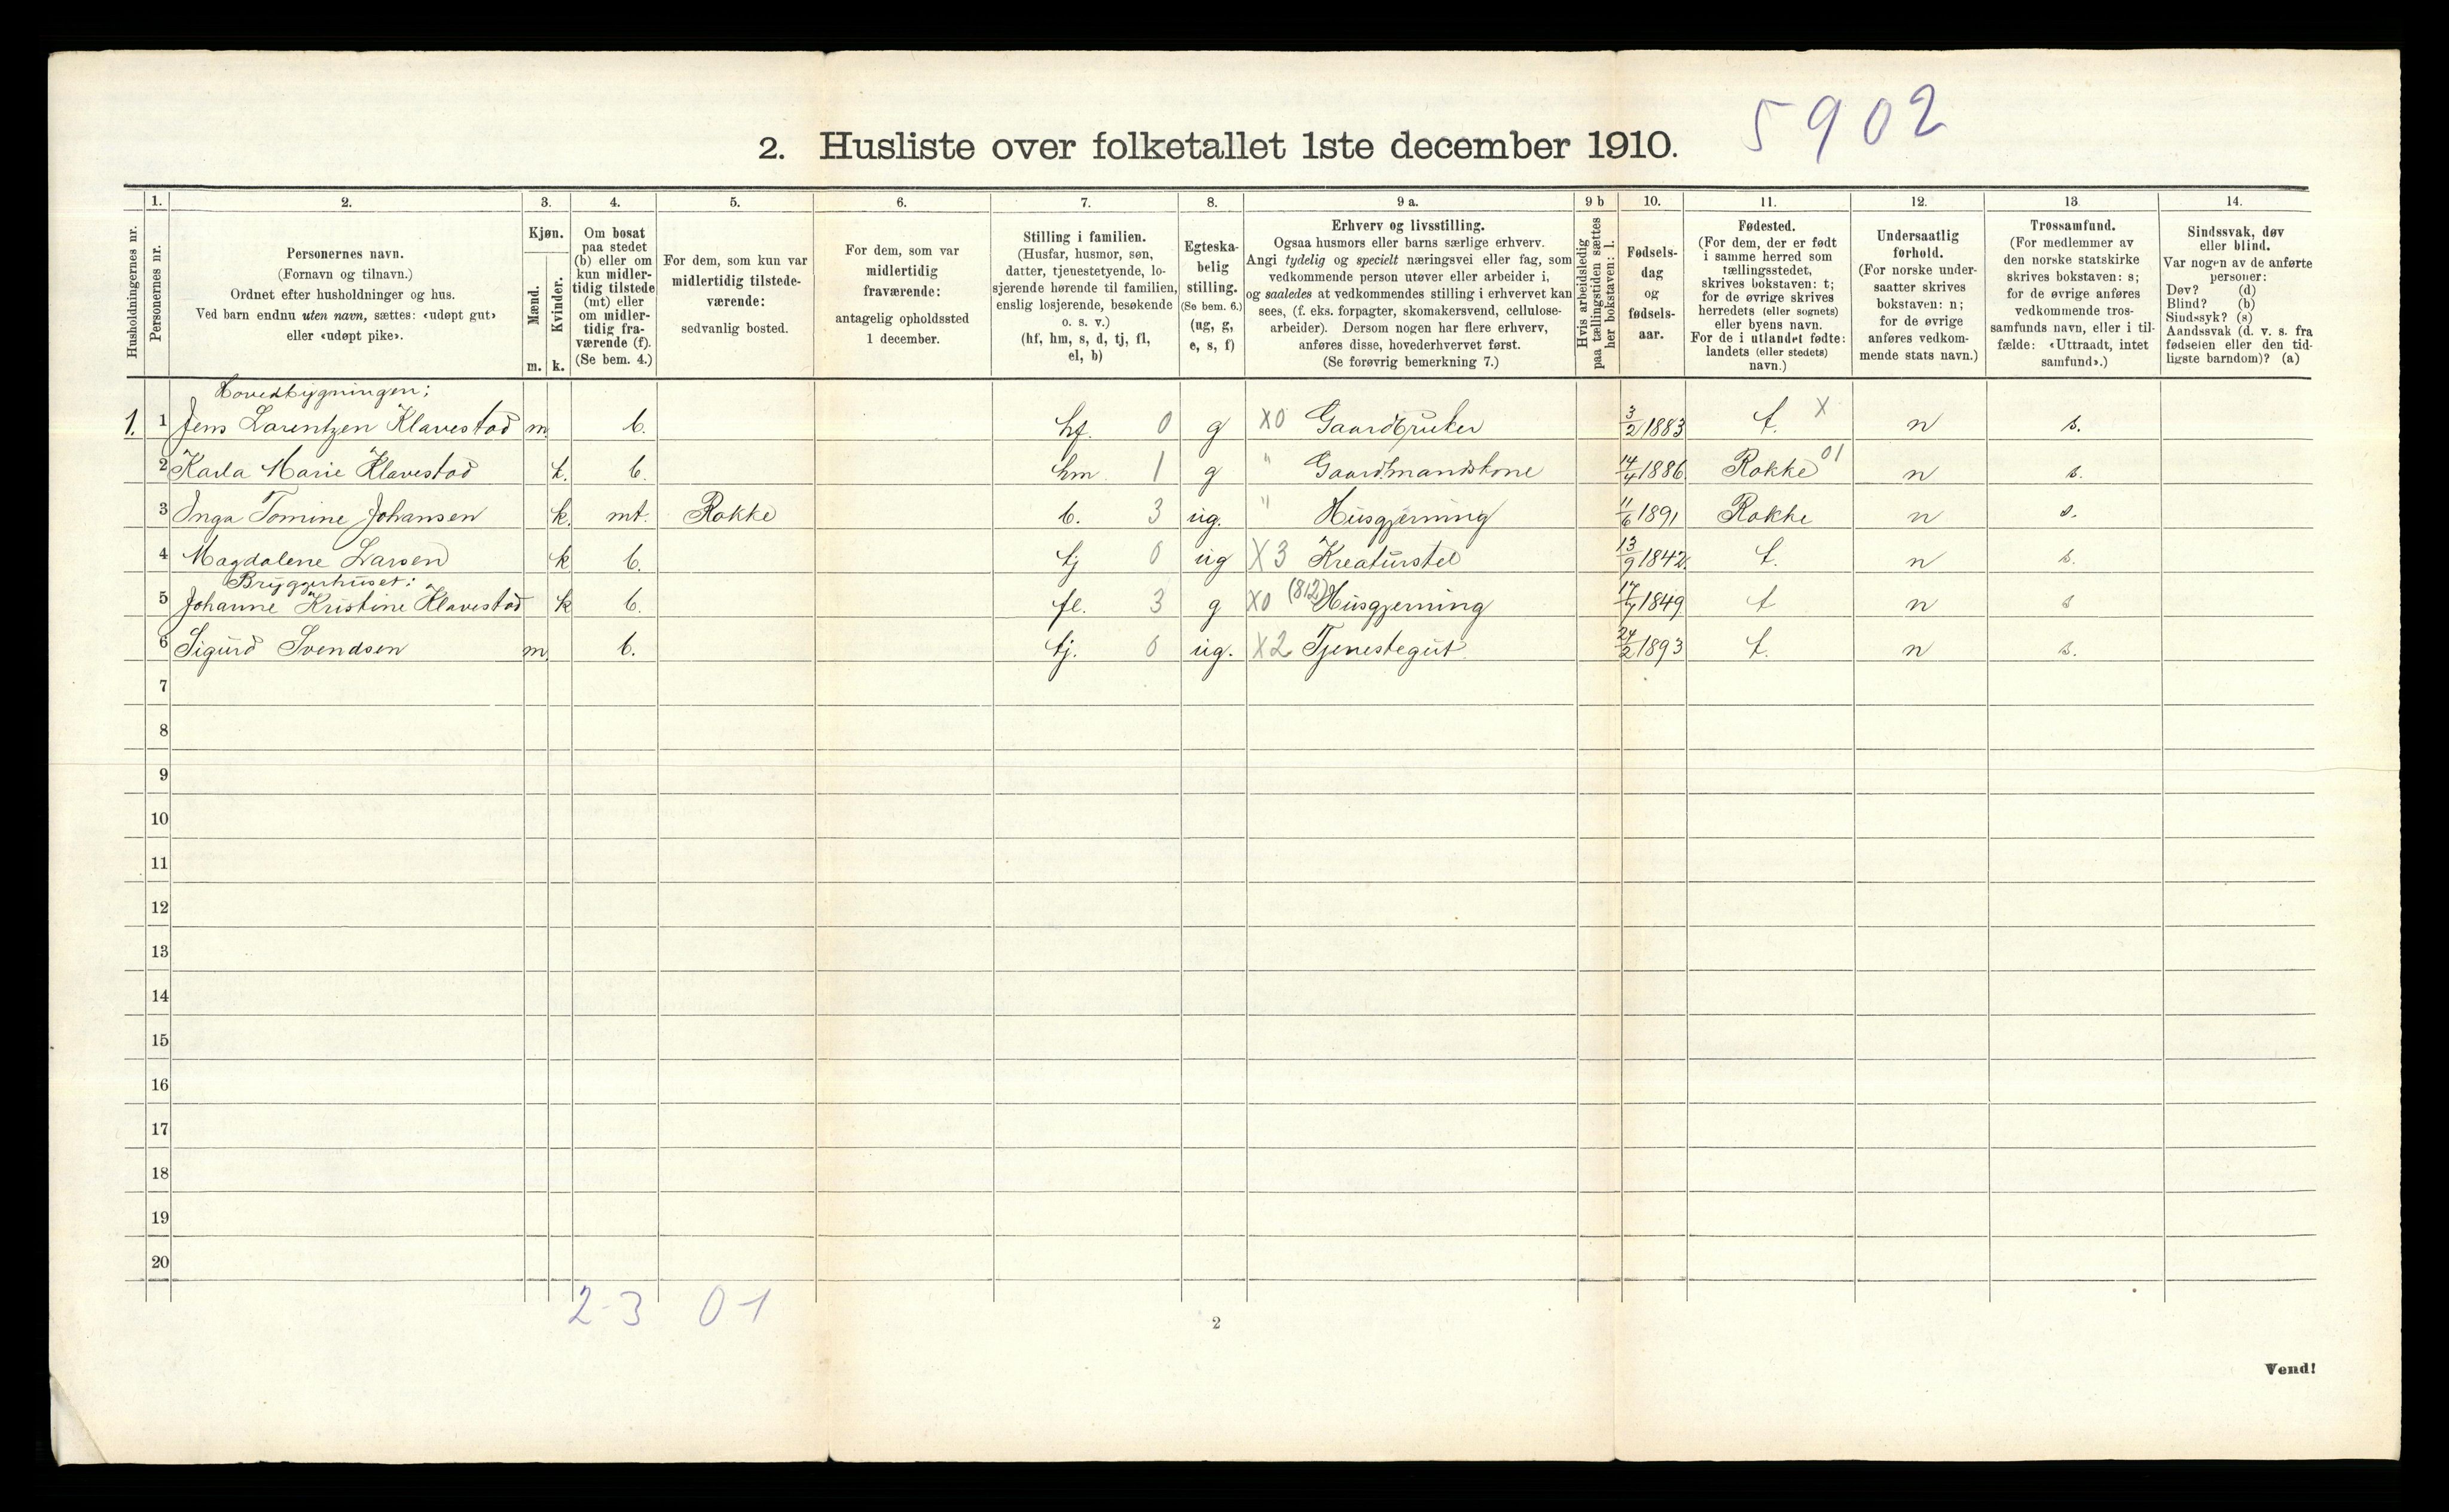 5902
2. Husliste over folketallet 1ste december 1910.
Husholdningernes nr.
1.
Personernes nr.
2.
Personernes navn.
(Fornavn og tilnavn.)
Ordnet efter husholdninger og hus.
Ved barn endnu uten navn, sættes: «udøpt gut»
eller «udøpt pike».
3.
Kjøn.
Mænd.
Kvinder.
m. k.
4.
Om bosat
paa stedet
(b) eller om
kun midler-
tidig tilstede
(mt) eller
om midler-
tidig fra-
værende (f).
(Se bem. 4.)
5.
For dem, som kun var
midlertidig tilstede-
værende:
sedvanlig bosted.
6.
For dem, som var
midlertidig
fraværende:
antagelig opholdssted
1 december.
7.
Stilling i familien.
(Husfar, husmor, søn,
datter, tjenestetyende, lo-
sjerende hørende til familien,
enslig losjerende, besøkende
o. s. v.)
(hf, hm, s, d, tj, fl,
el, b)
8.
Egteska-
belig
stilling.
(Se bem. 6.)
(ug, g,
e, s, f)
9 a.
Erhverv og livsstilling.
Ogsaa husmors eller barns særlige erhverv.
Angi tydelig og specielt næringsvei eller fag, som
vedkommende person utøver eller arbeider i,
og saaledes at vedkommendes stilling i erhvervet kan
sees, (f. eks. forpagter, skomakersvend, cellulose-
arbeider). Dersom nogen har flere erhverv,
anføres disse, hovederhvervet først.
(Se forøvrig bemerkning 7.)
9 b
Hvis arbeidsledig
paa tællingstiden sættes
her bokstaven: l.
10.
Fødsels-
dag
og
fødsels-
aar.
11.
Fødested.
(For dem, der er født
i samme herred som
tællingsstedet,
skrives bokstaven: t;
for de øvrige skrives
herredets (eller sognets)
eller byens navn.
For de i utlandet fødte:
landets (eller stedets)
navn.)
12.
Undersaatlig
forhold.
(For norske under-
saatter skrives
bokstaven: n;
for de øvrige
anføres vedkom-
mende stats navn.)
13.
Trossamfund.
(For medlemmer av
den norske statskirke
skrives bokstaven: s;
for de øvrige anføres
vedkommende tros-
samfunds navn, eller i til-
fælde: «Uttraadt, intet
samfund».)
14.
Sindssvak, døv
eller blind.
Var nogen av de anførte
personer:
Døv? (d)
Blind? (b)
Sindssyk? (s)
Aandssvak (d. v. s. fra
fødselen eller den tid-
ligste barndom)? (a)
Hovedbygningen:
1. 1 Jens Larentzen Klavestad m. b. hf. 0 g X0 Gaardbruker 3/2 1883 t. X n s.
2 Karla Marie Klavestad k. b. hm. 1 g " Gaardmandskone 14/4 1886. Rokke 01 n s.
3 Inga Tomine Johansen k. mt. Rokke b. 3 ug. " Husgjerning 11/6 1891 Rokke n s.
4 Magdalene Larsen k b. tj 0 ug X3 Kreaturstel 13/9 1842. t. n s.
Bryggerhuset:
5 Johanne Kristine Klavestad k b. fl. 3 g X0 (812) Husgjerning 17/7 1849. t n s
6 Sigurd Svendsen m. b. tj. 0 ug. X2 Tjenestegut 24/2 1893 t. n s.
7
8
9
10
11
12
13
14
15
16
17
18
19
20
2-3 0-1
2
Vend!